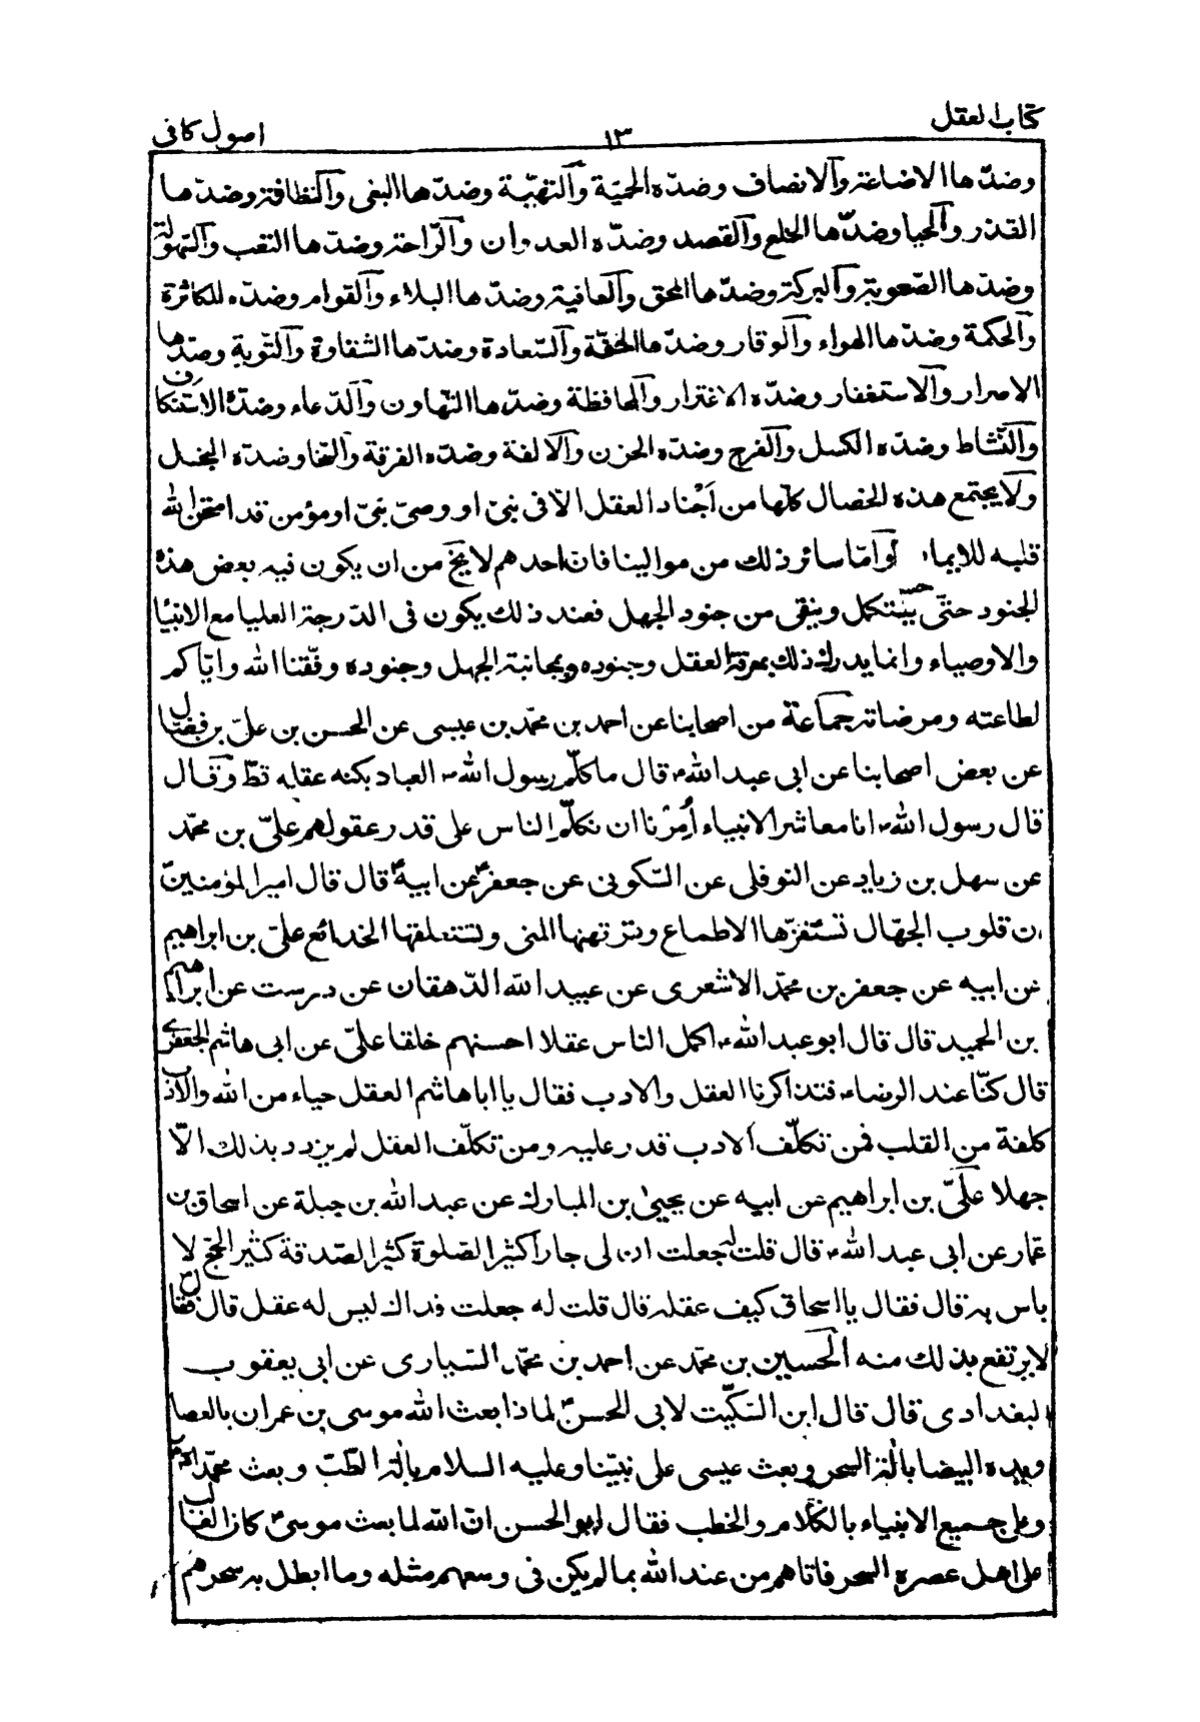 كتاب العقل
١٣
اصول كافى
وضدّها الاضاعة والانصاف وضدّه الحميّة والتهيّة وضدّها البغى والنظافة وضدّها
القذر والحيا وضدّها الخلع والقصد وضدّه العدوان والرّاحة وضدّها التعب والسّهولة
وضدّها الصّعوبة والبركة وضدّها المحق والعافية وضدّها البلاء والقوام وضدّه المكاثرة
والحكمة وضدّها الهواء والوقار وضدّها الخفّة والسّعادة وضدّها الشقاوة والتّوبة وضدّها
الاصرار والاستغفار وضدّه الاغترار والمحافظة وضدّها التّهاون والدّعاء وضدّه الاستنكاف
والنّشاط وضدّه الكسل والفرح وضدّه الحزن والالفة وضدّه الفرقة والسّخا وضدّه البخل
ولا يجتمع هذه الخصال كلّها من أجْناد العقل الّا فى نبىّ او وصىّ نبىّ او مؤمن قد امتحن الله
قلبه للايمان وامّا سائر ذلك من موالينا فان احدهم لا يخ من ان يكون فيه بعض هذه
الجنود حتّى يستكمل وينقى من جنود الجهل فعند ذلك يكون فى الدّرجة العليا مع الانبيا
والاوصياء وانما يدرك ذلك بمعرفة العقل وجنوده وبمجانبة الجهل وجنوده وفّقنا الله وايّاكم
لطاعته ومرضاته جماعة من اصحابنا عن احمد بن محمّد بن عيسى عن الحسن بن علىّ بن فضّال
عن بعض اصحابنا عن ابى عبد الله ع قال ما كلّم رسول الله ص العباد بكنه عقله قطّ وقال
قال رسول الله ص انا معاشر الانبياء أُمِرْنا ان نكلّم الناس على قدر عقولهم علىّ بن محمّد
عن سهل بن زياد عن النوفلى عن السّكونى عن جعفر ع عن ابيه ع قال قال امير المؤمنين ع
ان قلوب الجهّال تستفزّها الاطماع وترتهنها المنى وتستعلقها الخدائع علىّ بن ابراهيم
عن ابيه عن جعفر بن محمّد الاشعرى عن عبيد الله الدّهقان عن درست عن ابراهيم
بن الحميد قال قال ابو عبد الله ع اكمل الناس عقلا احسنهم خلقا علىّ عن ابى هاشم الجعفرى
قال كنّا عند الرضاء ع فتذاكرنا العقل والادب فقال يا ابا هاشم العقل حياء من الله والادب
كلفة من القلب فمن تكلّف الادب قدر عليه ومن تكلّف العقل لم يزدد بذلك الّا
جهلا علىّ بن ابراهيم عن ابيه عن يحيى بن المبارك عن عبد الله بن جبلة عن اسحاق بن
عمّار عن ابى عبد الله ع قال قلت له جعلت ان لى جارا كثير الصّلوة كثير الصّدقة كثير الحجّ لا
باس به قال فقال يا اسحاق كيف عقله قال قلت له جعلت فداك ليس له عقل قال فقال
لا يرتفع بذلك منه الحسين بن محمّد عن احمد بن محمّد السّيارى عن ابى يعقوب
البغدادى قال قال ابن السّكّيت لابى الحسن ع لماذا بعث الله موسى بن عمران بالعصا
ويده البيضا بالة السحر وبعث عيسى على نبيّنا وعليه السلام بالة الطّبّ وبعث محمّد
وعلى جميع الانبياء بالكلام والخطب فقال ابو الحسن انّ الله لما بعث موسى ع كان الغالب
على اهل عصره السحر فاتاهم من عند الله بما لم يكن فى وسعهم مثله وما ابطل به سحرهم